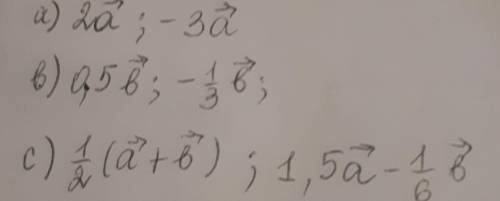 а) 2a⃗ ; -3a⃗
в) 0,5в⃗ ; -1/3 в⃗ ;
с) 1/2 (a⃗ + в⃗) ; 1,5a⃗ - 1/6 в⃗